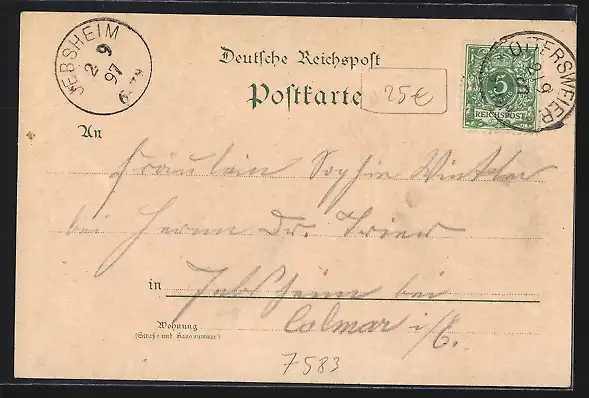 JEBSHEIM
2 9
97
Deutsche Reichspost
Postkarte
25€
5
REICHSPOST
OTTERSWEIER
2/9
An
Fräulein Sophie Winter
bei Herrn Dr. Trier
in Jebsheim bei
Colmar i/E.
Wohnung
(Straße und Hausnummer)
7583